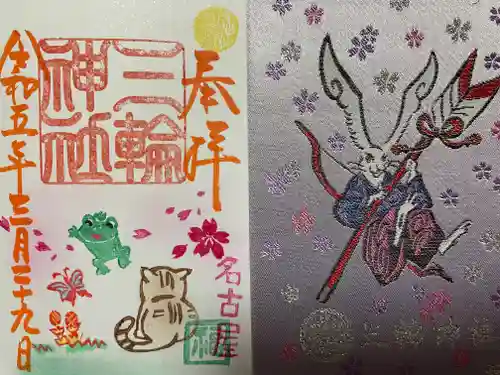 奉拝
三輪
神社
令和五年三月二十九日
名古屋
三輪神社